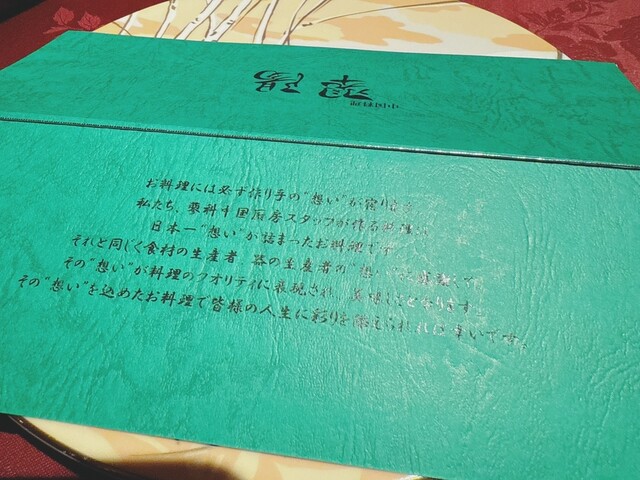 中国料理
翠陽
お料理には必ず作り手の"想い"が宿ります
私たち、蓼科中国厨房スタッフが作る料理は
日本一"想い"が詰まったお料理です
それと同じく食材の生産者 器の生産者の"想い"
その"想い"が料理のクオリティに表現され 美味しさとなります
その"想い"を込めたお料理で皆様の人生に彩りを添えられれば幸いです。